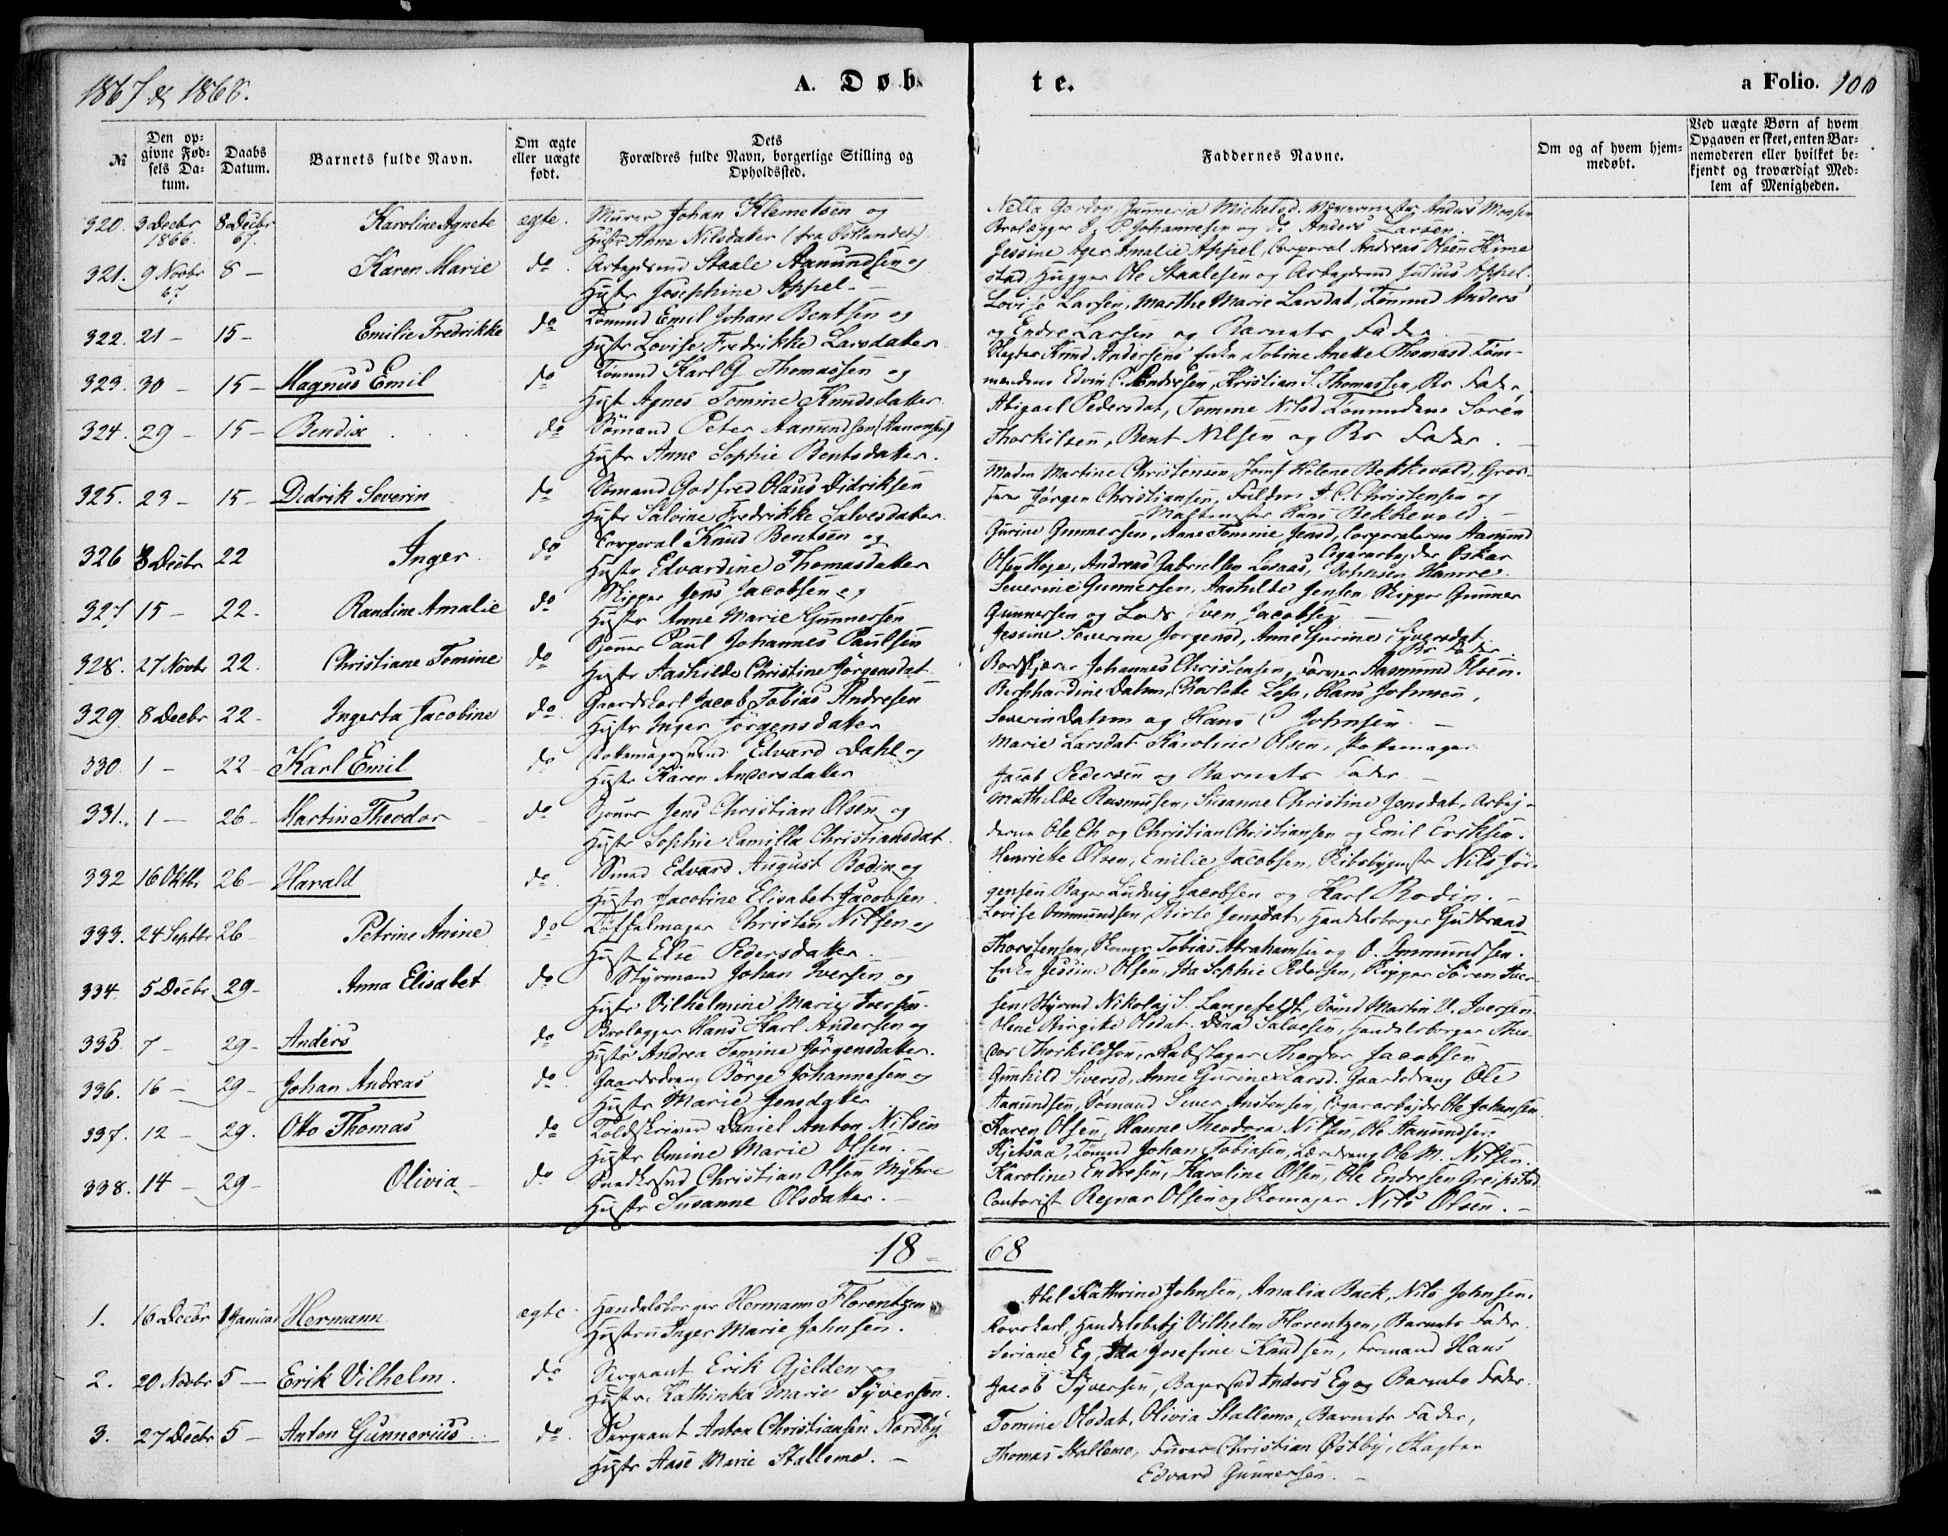 1867 & 1868.
A. Døb
te.
a Folio. 100
№
Den opgivne Fødsels Datum.
Daabs Datum.
Barnets fulde Navn.
Om ægte eller uægte født.
Dets Forældres fulde Navn, borgerlige Stilling og Opholdssted.
Faddernes Navne.
Om og af hvem hjemmedøbt.
Ved uægte Børn af hvem Opgaven er skeet, enten Barnemoderen eller hvilket bekjendt og troværdigt Medlem af Menigheden.
320. 3 Decbr 1866. 8 Decbr 67. Karoline Agnete ægte. Murer Johan Klemetsen og
Hustr Anne Nilsdatter (fra Østlandet).
321. 9 Novbr 67. 8 — Karen Marie do. Arbeidsmd Staale Aanundsen og
Hustr Josephine Appel. —
Jessine Ager Amalie Appel, Corporal Andreas Olsen
Hugger Ole Staalesen og Arbeidsmd Julius Appel.
322. 21 — 15 — Emilie Fredrikke do Tømmd Emil Johan Bentsen og
Hustr Lovise Fredrikke Larsdatter
Lovise Larsen, Marthe Marie Larsdat, Tømmd Anders
og Endre Larsen og Barnets Fader —
323. 30 — 15 — Magnus Emil do Tømmd Karl G Thomassen og
Hust Agnes Tomine Knudsdatter
Knud Andersens Enke, Tobine Anette Thomasd Tøm-
mændene Edvin C. Andresen, Kristian S. Thomassen, Bs Fader.
324. 29 — 15 — Bendix do Sømand Peter Aanundsen
Hustr Anne Sophie Bentsdatter.
Abigael Pedersdat, Tomine Nilsd Tømmdene Søren
Thorkilsen, Bent Nilsen og Bs Fader. —
325. 23 — 15 — Didrik Severin do Sømand Godfred Olaus Didriksen
Hustr Salvine Fredrikke Salvesdatter.
Madm Martine Christensen, Jomf Helene Bekkevold,
Jørgen Christiansen, A. C. Christensen og
Hans Bekkevold. —
326 8 Decbr 22 Inger do Corporal Knud Bentsen og
Hustr Edvardine Thomasdatter
Gurine Gunnersen, Anne Tomine Jensd, Corporalerne Aanund
Andreas Gabrielsen Cigararbejder Oskar
Johnsen Hamre.
327. 15 — 22. Randine Amalie do Skipper Jens Jacobsen og
Hustr Anne Marie Gunnersen
Severine Gunnersen, Aashilde Jensen Skipper Gunner
Gunnersen og Lods Sven Jacobsen —
328. 27 Novbr 22. Christiane Tomine do Paul Johannes Paulsen
Hustr Aashilde Christine Jørgensdat
Jessine Severine Jørgensd, Anne Gurine Syversdat.
Bs Fader.
Johannes Christensen, Aasmund Olsen.
329. 8 Decbr 22 — Ingerta Jacobine do Gaardskarl Jacob Tobias Andresen
Hustr Inger Jørgensdatter
Hans Johnsen,
Severin og Hans C Johnsen. —
330. 1 — 22 — Karl Emil do Edvard Dahl og
Hustr Karen Andersdatter
Marie Larsdat. Karoline Olsen,
Jacob Pedersen og Barnets Fader —
331. 1 — 26 — Martin Theodor do Jens Christian Olsen og
Hustr Sophie Camilla Christiansdat
Mathilde Rasmussen, Susanne Christine Jensdat. Arbej-
derne Ole Ch og Christian Christiansen og Emil Eriksen.
332 16 Oktbr 26 — Harald do. Smed Edvard August Bodin og
Hustr Jacobine Elisabet Jacobsen.
Henriette Olsen, Emilie Jacobsen, Skibsbygmstr Nils Jør-
gensen Bager Ludvig Jacobsen og Karl Bodin. —
333. 24 Septbr 26 — Petrine Anine do Tøffelmager Christen Nilsen og
Hust Else Pedersdatter —
Lovise Ommundsen, Birte Jensdat, Handelsborger Gudbrand
Thorstensen, Tobias Abrahamsen og O. Ommundsen.
334. 5 Decbr 29 — Anna Elisabet do Styrmand Johan Iversen og
Hustr Vilhelmine Marie Iversen.
Enke Jessine Olsen, Ida Sophie Pedersen, Skipper Søren
Styrmd Nikolaj S. Langefeldt, Sømd Martin V. Iversen.
335. 7 — 29 — Anders do Brolægger Hans Karl Andersen og
Hustr Andrea Tomine Jørgensdatter.
Olene Birgitte Olsdat. Dina Salvesen, Handelsborger Theo-
dor Thorkildsen, Rebslager Theodor Jacobsen
336. 16 — 29 — Johan Andreas do. Gaardsdreng Børge Johannesen og
Hustr Marie Jensdatter
Gunhild Siversd, Anne Gurine Larsd. Gaardsdreng Ole
Aanundsen, Sømand Siver Anstensen, Cigararbejder Ole Johansen
337. 12 — 29. Otto Thomas do Toldskriver Daniel Anton Nilsen
Hustr Omine Marie Olsen. —
Karen Olsen, Hanne Theodora Nilsen, Ole Aanundsen
Kjetsaa, Tømmd Johan Tobiasen, Læredreng Ole M. Nilsen.
338. 14 — 29 — Olivia — do Snedkersvd Christian Olsen Myhre
Hustr Susanne Olsdatter. —
Karoline Endresen, Karoline Olsen, Ole Endresen Greipstad
Contorist Regnar Olsen og Skomager Nils Olsen. —
18 — 68
1. 16 Decbr 1 Januar Hermann ægte. Handelsborger Hermann Florentzen
Hustru Inger Marie Johnsen.
Abel Kathrine Johnsen, Amalia Back, Nils Johnsen,
Handelsbetj Vilhelm Florentzen, Barnets Fader.
2. 20 Novbr 5 — Erik Vilhelm. do Sergeant Erik Gjelden og
Hustr. Kathinka Marie Syversen.
Seriane Eg, Ida Josefine Knudsen, Formand Hans
Jacob Syversen, Bagersvd Anders Eg og Barnets Fader.
3. 27 Decbr 5 — Anton Gunnerius do. Sergeant Anton Christiansen Nordby
Hustr Aase Marie Stallemo. —
Tomine Olsdat, Olivia Stallemo, Barnets Fader,
Thomas Stallemo, Furer Christian Østby,
Edvard Gunnersen. —